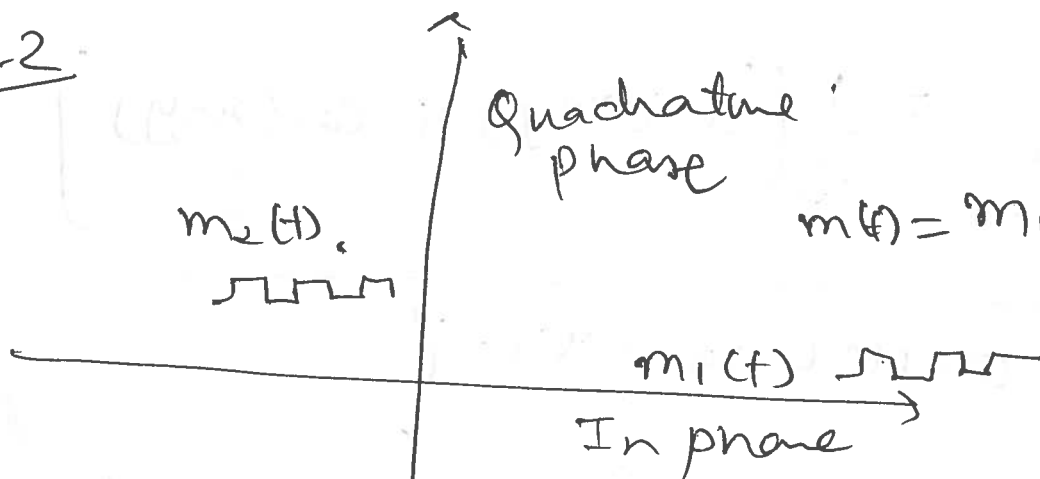 -2
Quadrature
phase
m₂(t).
m(t) = m
m₁(t)
In phase